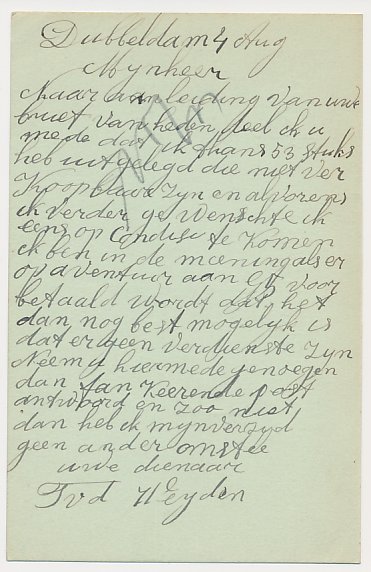 Dubbeldam 4 Aug
Mynheer
Naar aanleiding van uwe
brief van heden deel ik u
mede dat ik thans 53 stuks
heb uitgelegd die niet ver
Koopbaar zyn en alvorens
ik verder ge Wenschte ik
eens op Condisi te Komen
ik ben in de meening als er
op avontuur aan voor
betaald wordt dat het
dan nog best mogelyk is
dat er geen verdienste zyn
Neem y hiermede genoegen
dan Keerende post
antwoord en zoo niet
dan heb ik myn verzyd
geen ander omstee
uwe dienaar
T v d Heyden